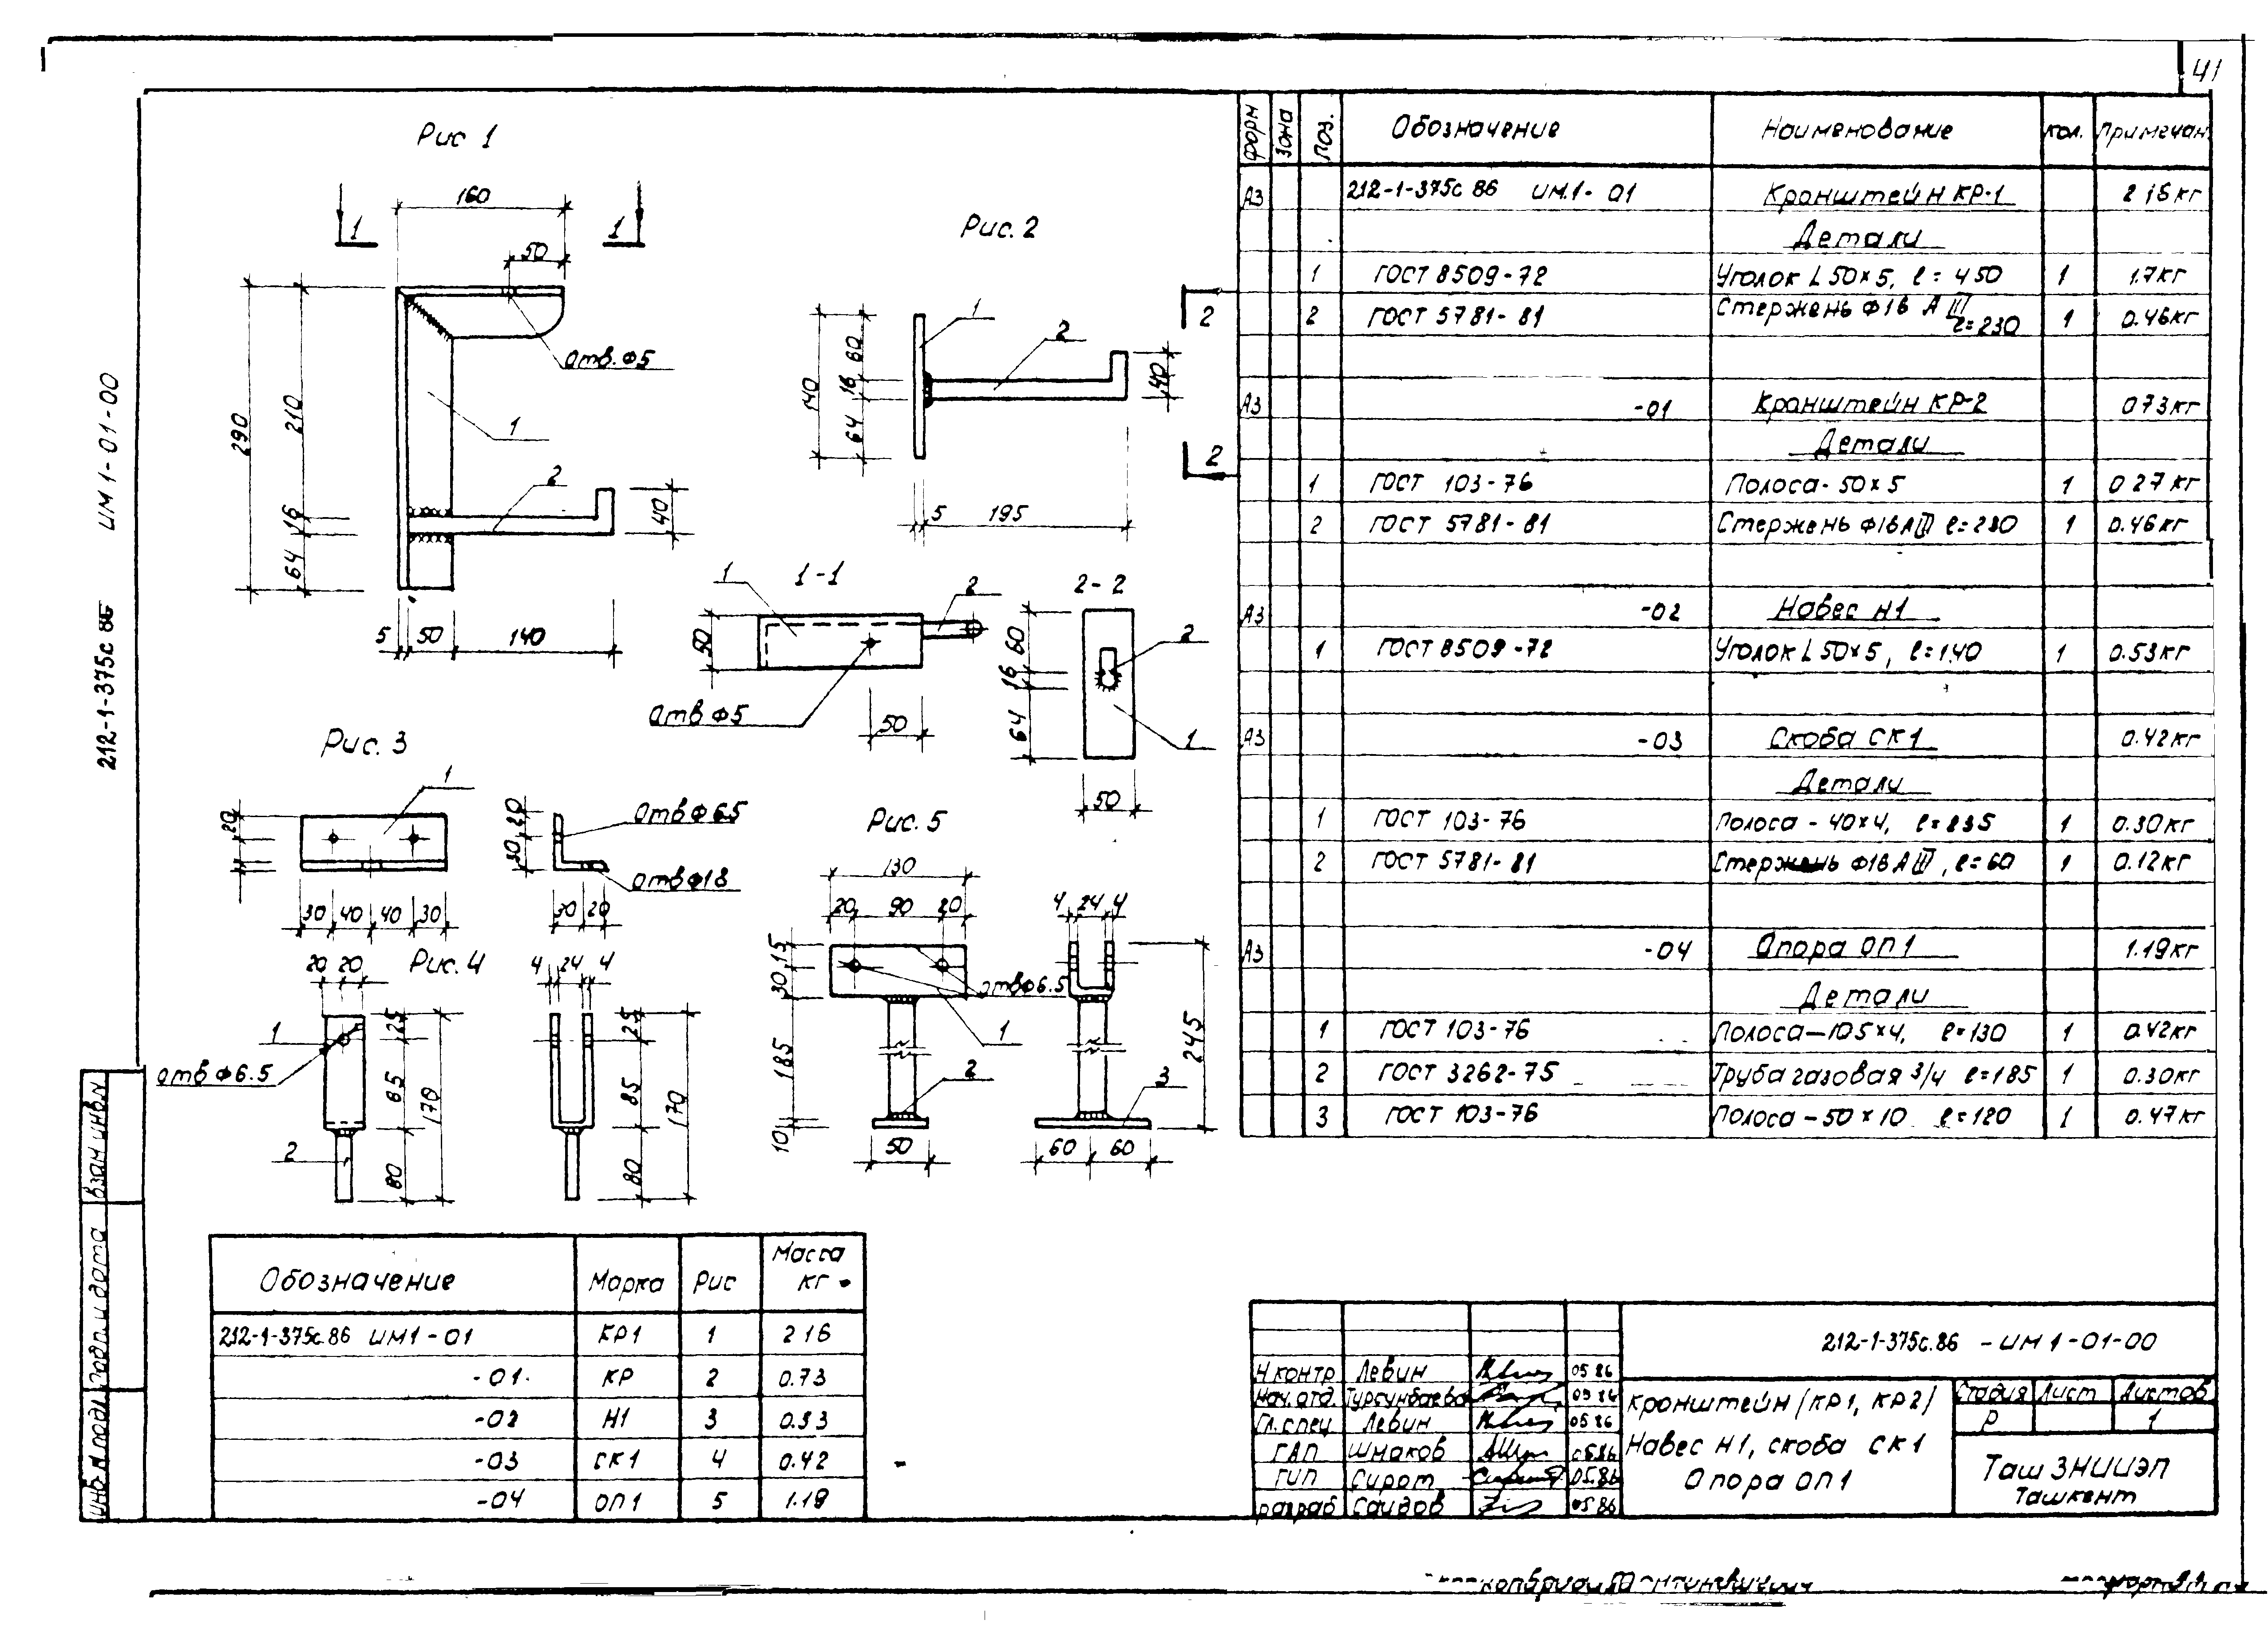 41
Рис 1
160
1
1
50
290
210
16
64
отв. Ф5
1
2
40
5 50 140
Рис. 2
140
60
16
64
1
2
40
2
2
5 195
1-1
1
2
50
отв Ф5
50
2-2
60
16
64
2
1
50
Рис. 3
1
20
30 40 40 30
20
30
отв Ф 6.5
отв Ф18
30 20
Рис. 4
20 20
1
отв Ф6.5
25
85
170
80
2
4 24 4
25
85
170
80
Рис. 5
130
20 90 20
15
30
185
10
отв Ф6.5
1
2
50
4 24 4
245
3
60 60
212-1-375с 86 ИМ 1-01-00
Форм Зона Поз. Обозначение Наименование Кол. Примечан
А3 212-1-375с 86 ИМ.1-01 Кронштейн КР-1 2 16кг
Детали
1 ГОСТ 8509-72 Уголок L 50×5, ℓ= 450 1 1.7кг
2 ГОСТ 5781-81 Стержень Ф16 А III ℓ=230 1 0.46кг
А3 -01 Кронштейн КР-2 073кг
Детали
1 ГОСТ 103-76 Полоса-50×5 1 0 27кг
2 ГОСТ 5781-81 Стержень Ф16АIII ℓ=230 1 0.46кг
А3 -02 Навес Н1
1 ГОСТ 8509-72 Уголок L 50×5, ℓ=140 1 0.53кг
А3 -03 Скоба СК1 0.42кг
Детали
1 ГОСТ 103-76 Полоса - 40×4, ℓ=235 1 0.30кг
2 ГОСТ 5781-81 Стержень Ф16 АIII, ℓ=60 1 0.12кг
А3 -04 Опора ОП1 1.19кг
Детали
1 ГОСТ 103-76 Полоса—105×4, ℓ=130 1 0.42кг
2 ГОСТ 3262-75 Труба газовая 3/4 ℓ=185 1 0.30кг
3 ГОСТ 103-76 Полоса-50×10 ℓ=120 1 0.47кг
Обозначение Марка Рис Масса кг
212-1-375с.86 ИМ1-01 КР1 1 2 16
-01 КР 2 0.73
-02 Н1 3 0.53
-03 СК1 4 0.42
-04 ОП1 5 1.19
Взам инв.N
Подп. и дата
Инв N подл.
212-1-375с.86 - ИМ 1-01-00
Н.контр Левин 05 86
Нач.отд. Турсунбаева 05 86
Гл.спец Левин 05 86
ГАП Шмаков 05.86
ГИП Сирот 05.86
разраб Саидов 05 86
Кронштейн (КР1, КР2)
Навес Н1, скоба СК1
Опора ОП1
Стадия Лист Листов
Р 1
Таш ЗНИИЭП
Ташкент